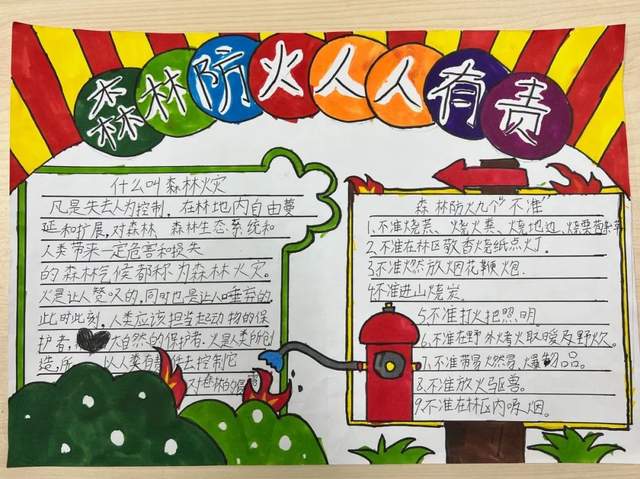 森林防火人人有责
什么叫森林火灾
凡是失去人为控制，在林地内自由蔓
延和扩展，对森林、森林生态系统和
人类带来一定危害和损失
的森林气候都称为森林火灾。
火是让人赞叹的，同时也是让人唾弃的，
此时此刻，人类应该担当起动物的保
护者，大自然的保护者，火是人类所创
造，所 以人类有 去控制它
森林防火九个“不准”
1.不准烧荒、烧火粪、烧地边、烧
2.不准在林区敬香烧纸点灯.
3.不准燃放烟花鞭炮.
4不准进山烧炭.
5.不准打火把照明.
6.不准在野外烤火取暖及野炊.
7.不准带易燃易爆物品。
8.不准放火驱兽.
9.不准在林区内吸烟.